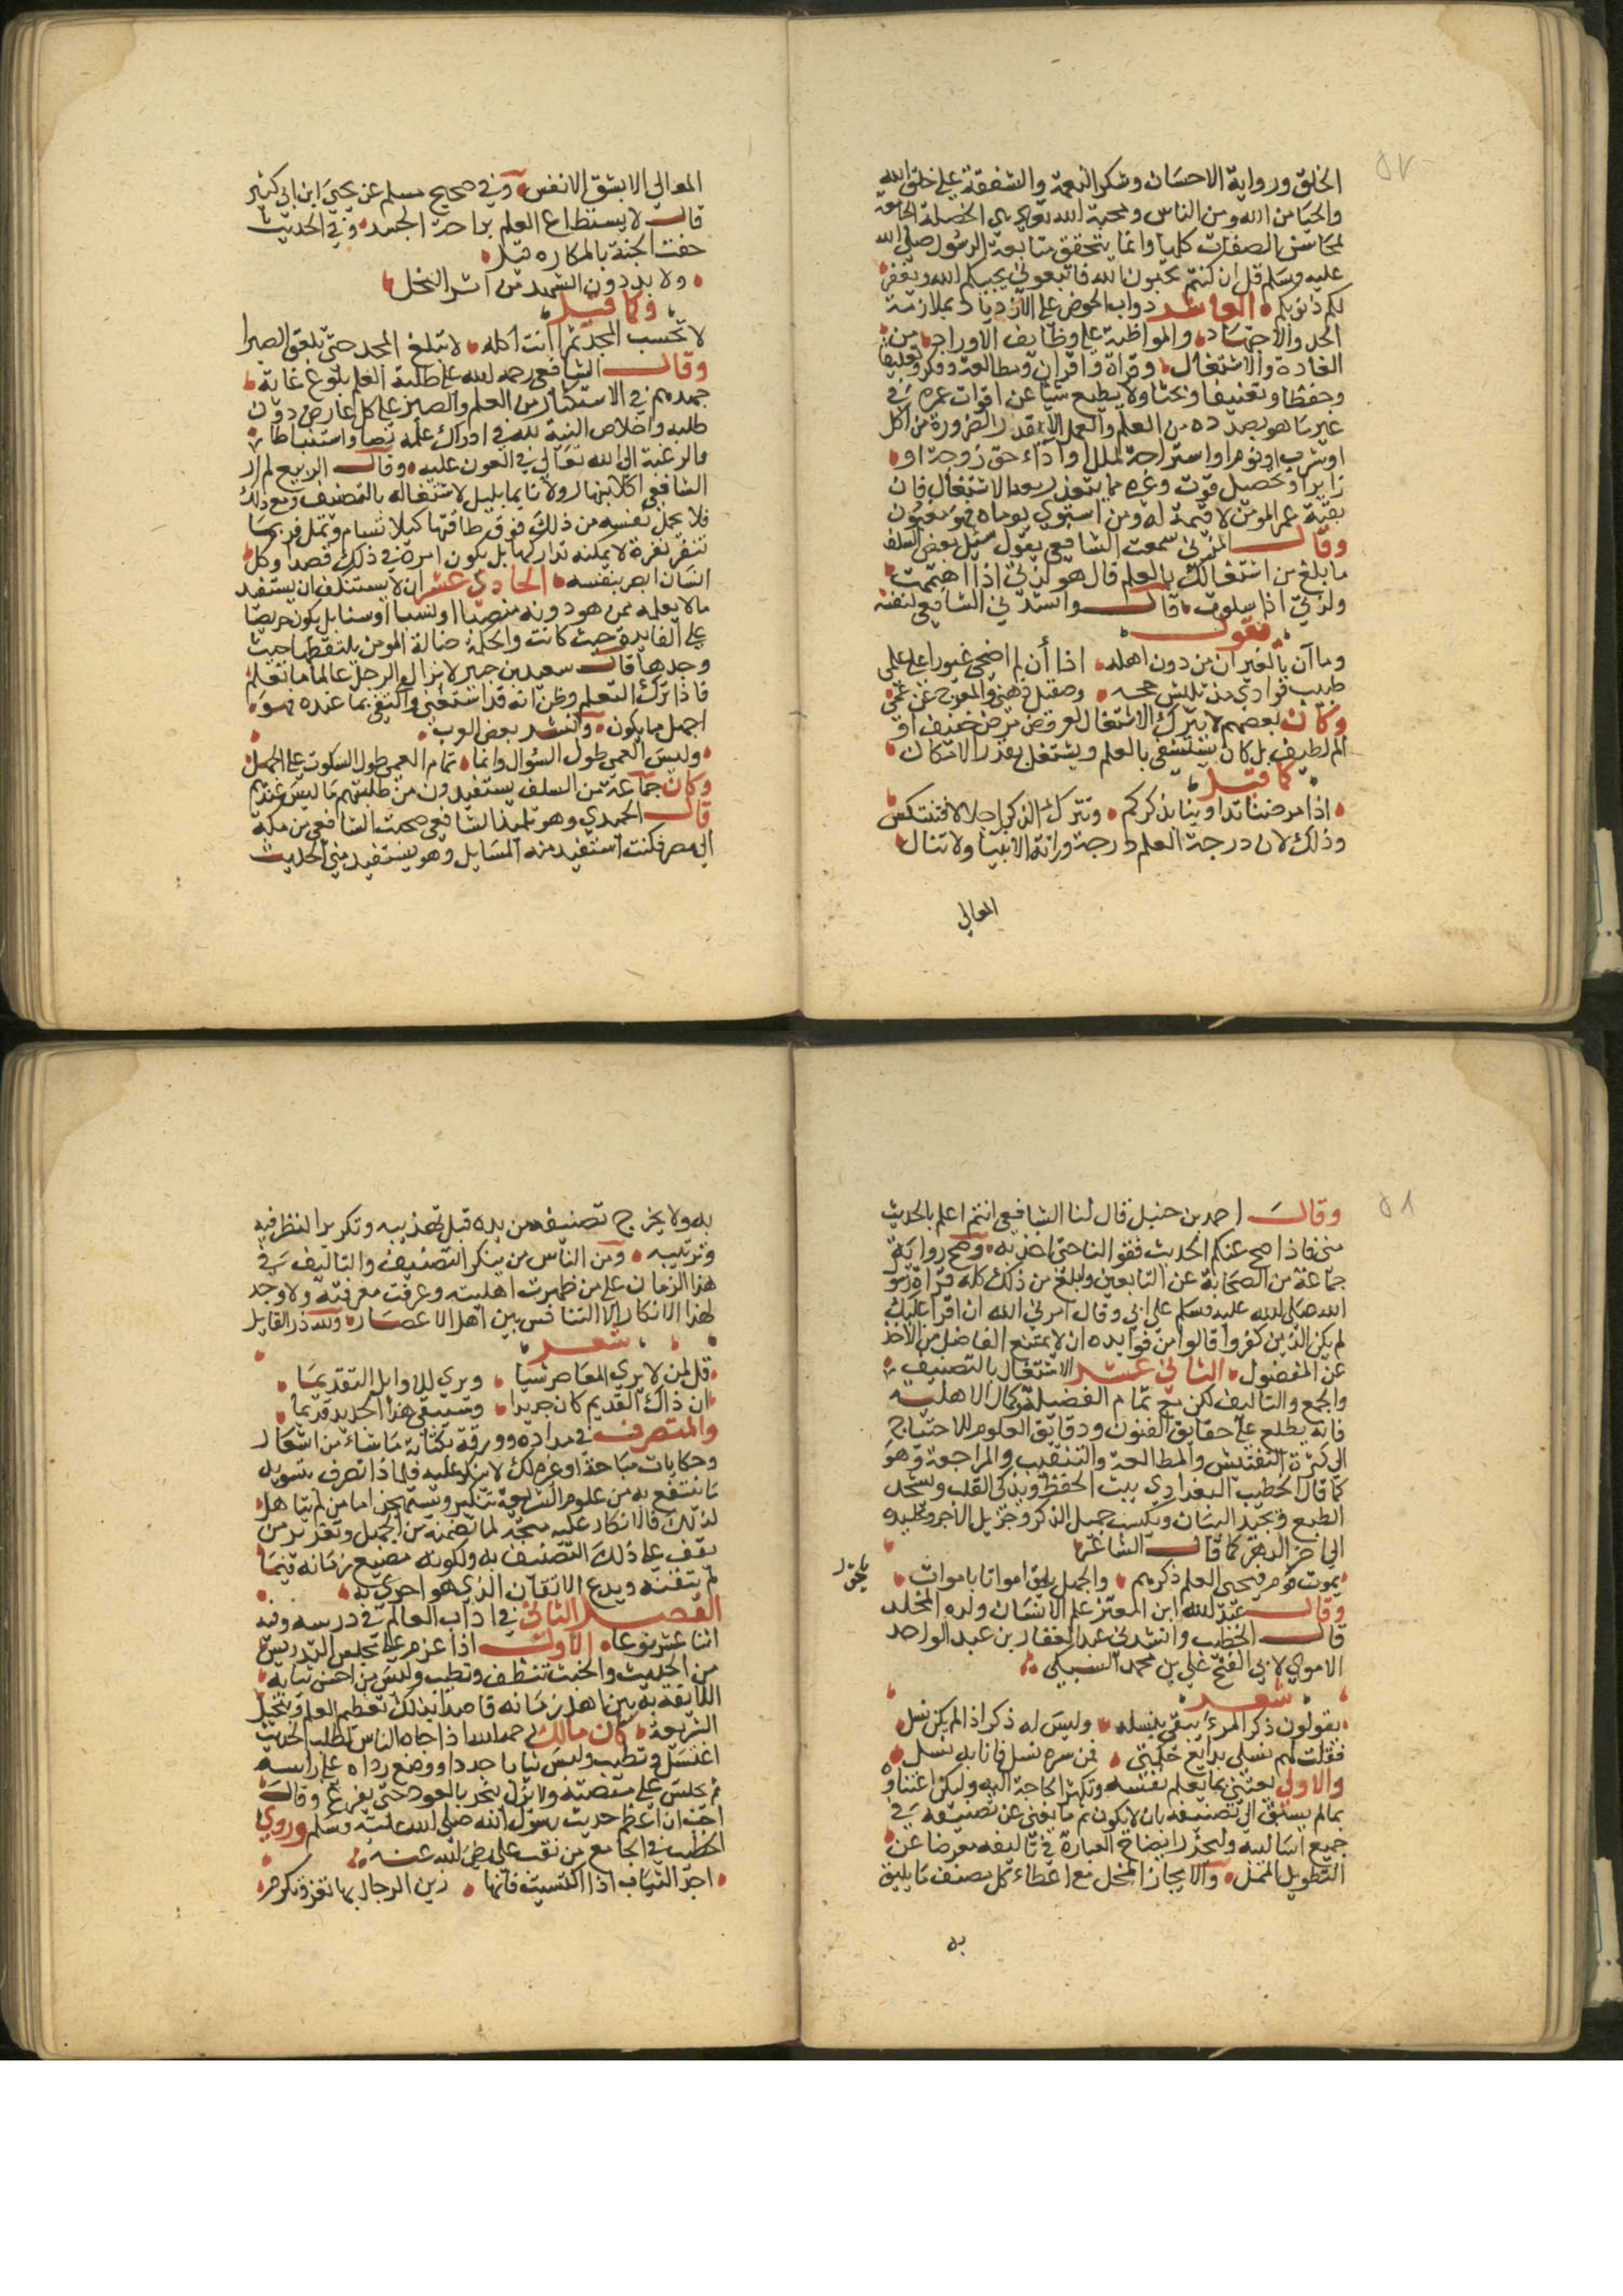 ٥٧
الخلق ورواية الاحسان وشكر النعمة والشفقة على خلق الله
والحيا من الله ومن الناس ومحبة الله تعالى هي الخصلة الجامعة
لمحاسن الصفات كلها وانما يتحقق متابعة الرسول صلى الله
عليه وسلم قل ان كنتم تحبون الله فاتبعوني يحببكم الله ويغفر
لكم ذنوبكم العاشر دواب الحرض على الازدياد بملازمة
الجد والاجتهاد والمواظبة على وظايف الاوراد من
العادة والاشتغال وقراة واقران ومطالعة وفكر وتعليقا
وحفظا وتصنيفا وبحثا ولا يضيع شيا عن اوقات عمره في
غير ما هو بصدده من العلم والعمل الا بقدر الضرورة من اكل
او شرب او نوم او استراحة لملل او اداء حق زوجة او
زاير او تحصيل قوت وغيره مما يتعذر معه الاشتغال فان
بقية عمر المومن لا قيمة له ومن استوى يوماه فهو مغبون
وقال المزني سمعت الشافعي يقول سئل بعض السلف
ما بلغ من اشتغالك بالعلم قال هو لذتي اذا اهتممت
ولذتي اذا سلوت قال وانشدني الشافعي لنفسه
فقول
وما آن بالغيران من دون اهله اذا أن لم اضحي غيورا على علمي
طبيب فوادي مذ ثلاثين حجة وصقيل ذهني والمفرج عن غمي
وكان بعضهم لا يترك الاشتغال لعروض مرض خفيف او
الم لطيف بل كان يستشفي بالعلم ويشتغل بقدر الامكان
كما قيل
اذا مرضنا تداوينا بذكركم ونترك الذكر احلالا فننتكس
وذلك لان درجة العلم درجة وراثة الانبيا ولا تنال
المعالي
المعالي الا بشق الانفس وفي صحيح مسلم عن يحيى ابن ابي كثير
قال لا يستطاع العلم براحة الجسد وفي الحديث
حفت الجنة بالمكاره قيل
ولا بد دون الشهد من ابر النحل
وكما قيل
لا تحسب المجد تمرا انت اكله لا تبلغ المجد حتى تلعق الصبرا
وقال الشافعي رحمه الله على طلبة العلم بلوغ غاية
جهدهم في الاستكثار من العلم والصبر على كل عارض دون
طلبه واخلاص النية لله في ادراك علمه نصا واستنباطا
والرغبة الى الله تعالى في العون عليه وقال الربيع لم ار
الشافعي اكلا بنهار ولا نايما بليل لاشتغاله بالتصنيف ومع ذلك
فلا يحمل نفسه من ذلك فوق طاقتها كيلا تسام وتمل فربما
تنفر نفرة لا يمكنه تداركها بل يكون امره في ذلك قصدا وكل
انسان ابصر بنفسه الحادي عشر ان لا يستنكف ان يستفيد
مالا يعلمه ممن هو دونه منصبا او نسبا او سنا بل يكون حريصا
على الفايدة حيث كانت والحكمة ضالة المومن يلتقطها حيث
وجدها قال سعيد بن جبير لا يزال الرجل عالما ما تعلم
فاذا ترك التعلم وظن انه قد استغنى واكتفى بما عنده فهو
اجهل ما يكون وانشد بعض العرب
وليس العمى طول السؤال وانما تمام العمى طول السكوت على الجهل
وكان جماعة من السلف يستفيدون من طلبتهم ما ليس عندهم
قال الحميدي وهو تلميذ الشافعي صحبت الشافعي من مكة
الى مصر فكنت استفيد منه المسايل وهو يستفيد مني الحديث
٥٨
وقال احمد بن حنبل قال لنا الشافعي انتم اعلم بالحديث
مني فاذا صح عندكم الحديث فقولوا لنا حتى اخذ به وصح رواية
جماعة من الصحابة عن التابعين وابلغ من ذلك كله قراة رسو
الله صلى الله عليه وسلم على ابي وقال امرني الله ان اقرا عليك
لم يكن الذين كفروا قالوا من فوايده ان لا يمتنع الفاضل من الاخذ
عن المفضول الثاني عشر الاشتغال بالتصنيف
والجمع والتاليف لكن مع تمام الفضيلة وكمال الاهلية
فانه يطلع على حقايق الفنون ودقايق العلوم للاحتياج
الى كثرة التفتيش والمطالعة والتنقيب والمراجعة وهو
كما قال الخطيب البغدادي يثبت الحفظ ويذكي القلب ويشحد
الطبع ويجيد البيان ويكسب جميل الذكر وجزيل الاجر وتخليده
الى اخر الدهر كما قال الشاعر
يموت قوم فيحيي العلم ذكرهم والجهل يلحق امواتا باموات
وقال عبد الله ابن المعتز علم الانسان ولده المخلد
قال الخطيب وانشدني عبد الغفار بن عبد الواحد
الاموي لابي الفتح علي بن محمد البستي
شعر
يقولون ذكر المرء يبقى بنسله وليس له ذكر اذا لم يكن نسل
فقلت لهم نسلي بدايع حكمتي فمن سره نسل فانا بها نسل
والاولى يعتني بما تعلم نفسه وتكثر الحاجة اليه وليكن اعتناؤه
بما لم يسبق الى تصنيفه بان لا يكون ثم ما يغني عن تصنيفه في
جميع اساليبه وليتحر ايضاح العبارة في تاليفه معرضا عن
التطويل الممل والايجاز المخل مع اعطاء كل مصنف ما يليق
به
به ولا يخرج تصنيفه من يده قبل تهذيبه وتكرير النظر فيه
وترتيبه ومن الناس من ينكر التصنيف والتاليف في
هذا الزمان على من ظهرت اهليته وعرفت معرفته ولا وجه
لهذا الانكار الا التنافس بين اهل الاعصار ولله در القايل
شعر
قل لمن لا يرى المعاصر شيا ويرى للاوايل التقديما
ان ذاك القديم كان جديدا وسيبقى هذا الحديد قديما
والمتصرف في مداده وورقه بكتابة ما شاء من اشعار
وحكايات مباحة او غير ذلك لا ينكر عليه فلماذا تصرف بتسويد
ما ينتفع به من علوم الشريعة ينكر ويستهجن اما من لم يتاهل
لذلك فالانكار عليه متجه لما تضمنه من الجهل وتغرير من
يقف على ذلك التصنيف به ولكونه مضيع زمانه فيما
لم يتقنه ويدع الاتقان الذي هو احرى به
الفصل الثاني في اداب العالم في درسه وفيه
اثنا عشر نوعا الاول اذا عزم على مجلس التدريس
من الحديث والخبث تنظف وتطيب ولبس من احسن ثيابه
اللايقة به بين اهل زمانه قاصدا بذلك تعظيم العلم وتبجيل
الشريعة كان مالك رحمه الله اذا جاه الناس لطلب الحديث
اغتسل وتطيب ولبس ثيابا جددا ووضع رداه على راسه
ثم يجلس على منصته ولا يزال يبخر بالعود حتى يفرغ وقال
احب ان اعظم حديث رسول الله صلى الله عليه وسلم وروي
الخطيب في الجامع من نقب علي رضي الله عنه
اجد الثياب اذا اكتسيت فانها زين الرجال بها تعز وتكرم